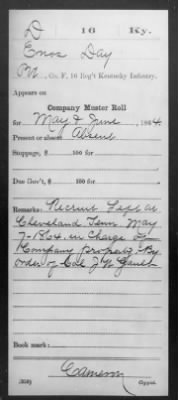 D 16 Ky.
Enos Day
Pvt., Co. F, 16 Reg't Kentucky Infantry.
Appears on
Company Muster Roll
for May & June, 1864
Present or absent Absent
Stoppage, $ 100 for
Due Gov't, $ 100 for
Remarks: Recruit Left at
Cleveland Tenn May
7-1864 in Charge of
Company property By
order of Col J W Gault
Book mark:
Cameron
Copyist.